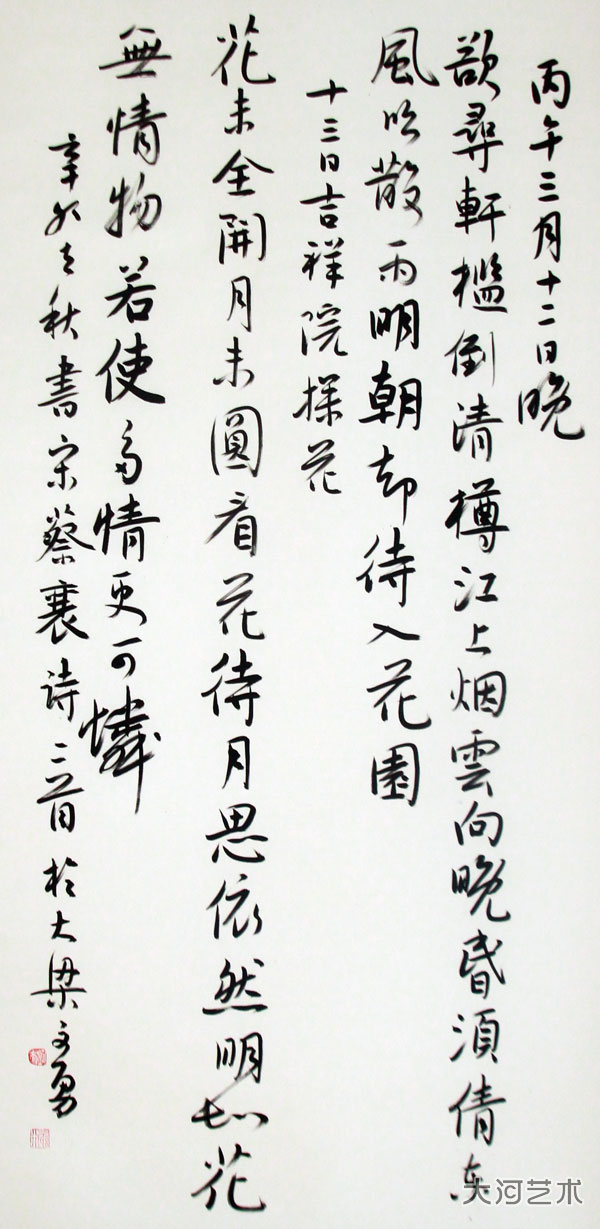 丙午三月十二日晚
欲尋軒檻倒清樽江上烟雲向晚昏須倩東
風吹散雨明朝却待入花園
十三日吉祥院探花
花未全開月未圓看花待月思依然明知花
無情物若使多情更可憐
辛卯立秋書宋蔡襄诗二首於大梁文勇
大河艺术